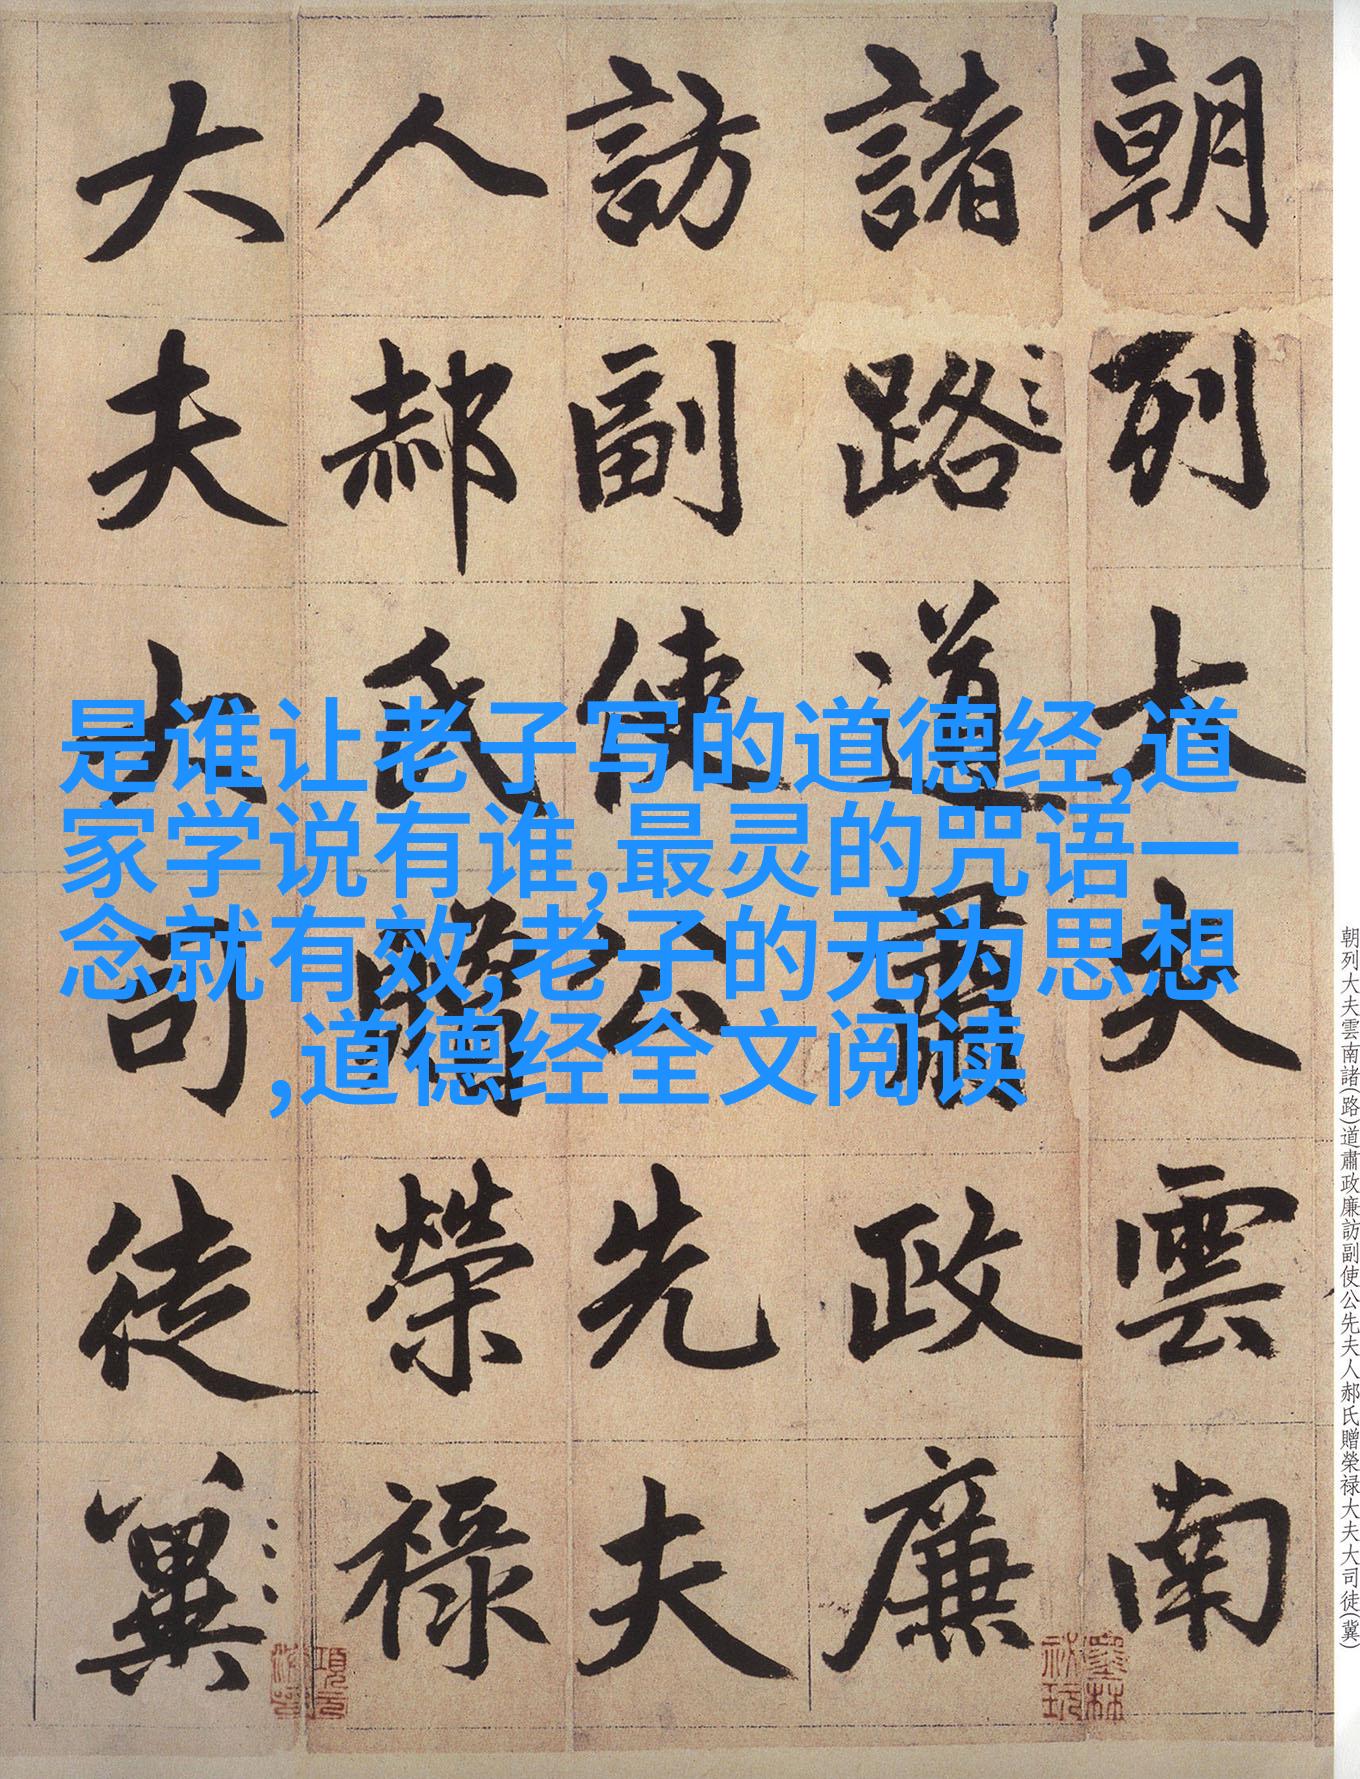 朝列大夫雲南
諸路道肅政廉
訪副使公先夫
人郝氏贈榮禄
大夫大司徒冀
是谁让老子写的道德经,道
家学说有谁,最灵的咒语一
念就有效,老子的无为思想
,道德经全文阅读
朝列大夫雲南諸(路)道肅政廉訪副使公先夫人郝氏贈榮禄大夫大司徒(冀)